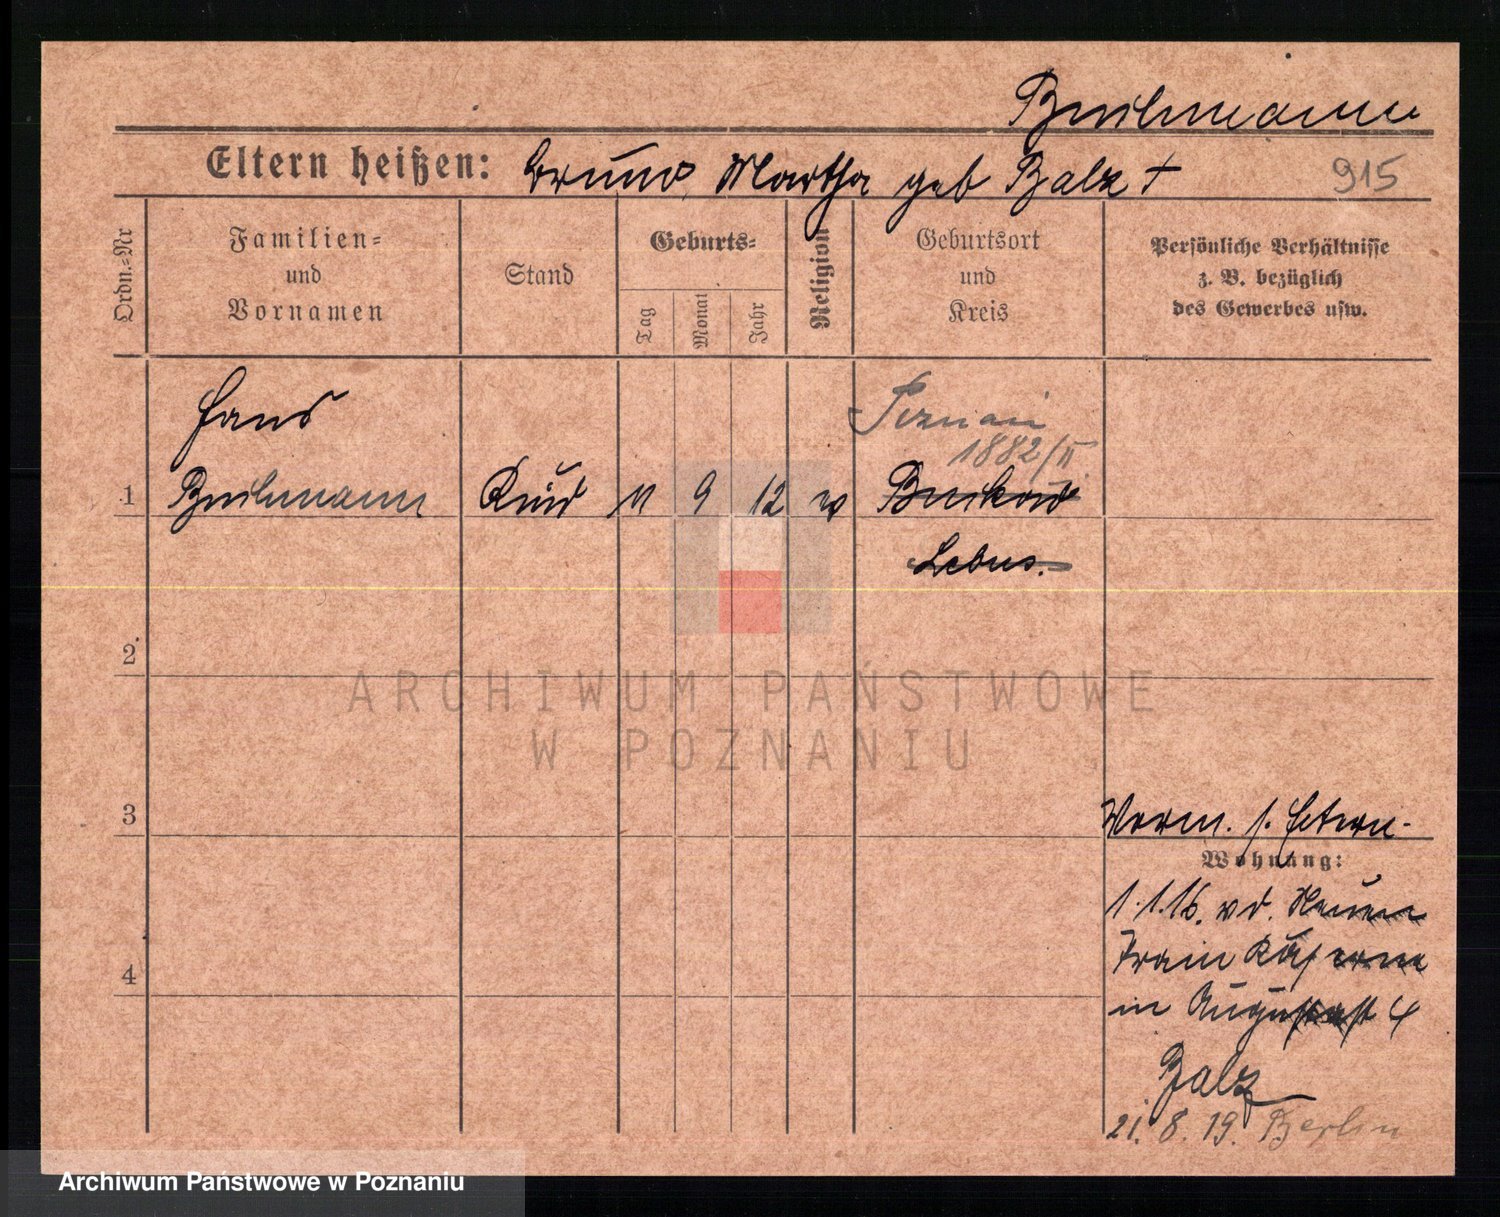 Bruhmann
Eltern heißen: Bruno, Martha geb Balz +
915
Ordn.-Nr
Familien-
und
Vornamen
Stand
Geburts-
Tag
Monat
Jahr
Religion
Geburtsort
und
Kreis
Persönliche Verhältnisse
z. B. bezüglich
des Gewerbes usw.
Hans
Poznań
1882/II
1 Kind 11 9 12 Buckow
Lebus.
2
ARCHIWUM PAŃSTWOWE
W POZNANIU
3
Vorm. s. Extern.
Wohnung:
1.1.16. v d. Neuen
Train Kaserne
4
in August 4
Balz
21. 8. 19. Berlin
Archiwum Państwowe w Poznaniu